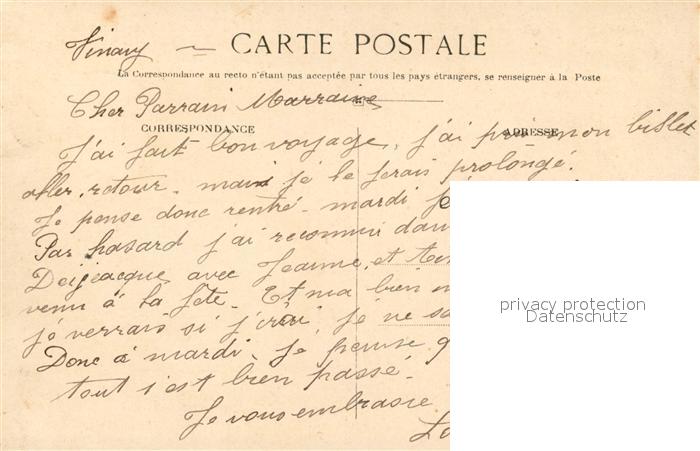 Vinay — CARTE POSTALE
La Correspondance au recto n'étant pas acceptée par tous les pays étrangers, se renseigner à la Poste
Cher Parrain Marraine
CORRESPONDANCE ADRESSE
J'ai fait bon voyage, j'ai pris mon billet
aller, retour - mais je le ferais prolongé.
Je pense donc rentré - mardi je
Par hasard j'ai reconnu dan
avec Jeanne, et
venu à la fête - Et ma bien
je verrais si j'irai, je ne sa
Donc à mardi, Je pense q
tout s'est bien passé -
Je vous embrasse
privacy protection
Datenschutz